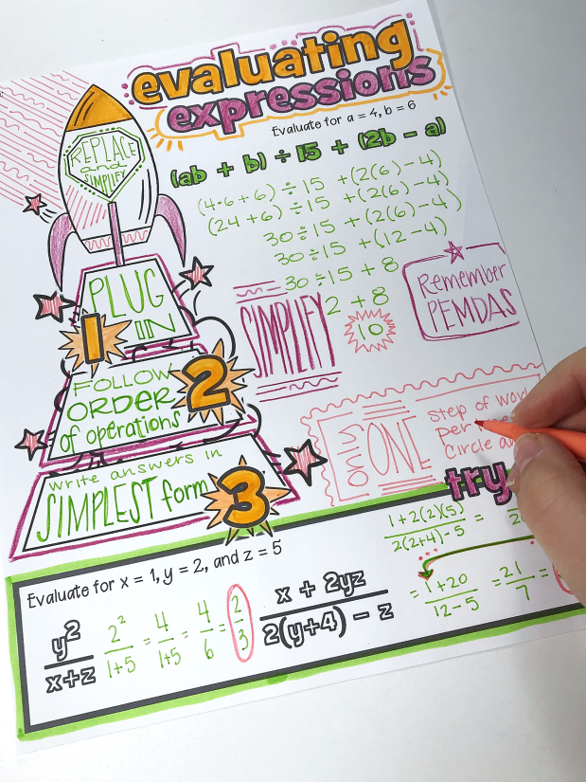 evaluating
expressions
Evaluate for a = 4, b = 6
(ab + b) ÷ 15 + (2b - a)
(4·6+6) ÷ 15 + (2(6)-4)
(24+6) ÷ 15 + (2(6)-4)
30÷15 + (2(6)-4)
30÷15 + (12-4)
30÷15 + 8
2 + 8
10
REPLACE
and
SIMPLIFY
PLUG
IN
1
FOLLOW
ORDER
of operations
2
write answers in
SIMPLEST form
3
SIMPLIFY
Remember
PEMDAS
ONE
step of work
per
circle
try
Evaluate for x = 1, y = 2, and z = 5
y²/x+z
2²/1+5 = 4/1+5 = 4/6 = 2/3
x + 2yz/2(y+4) - z
1+2(2)(5)/2(2+4)-5 =
= 1+20/12-5 = 21/7 =